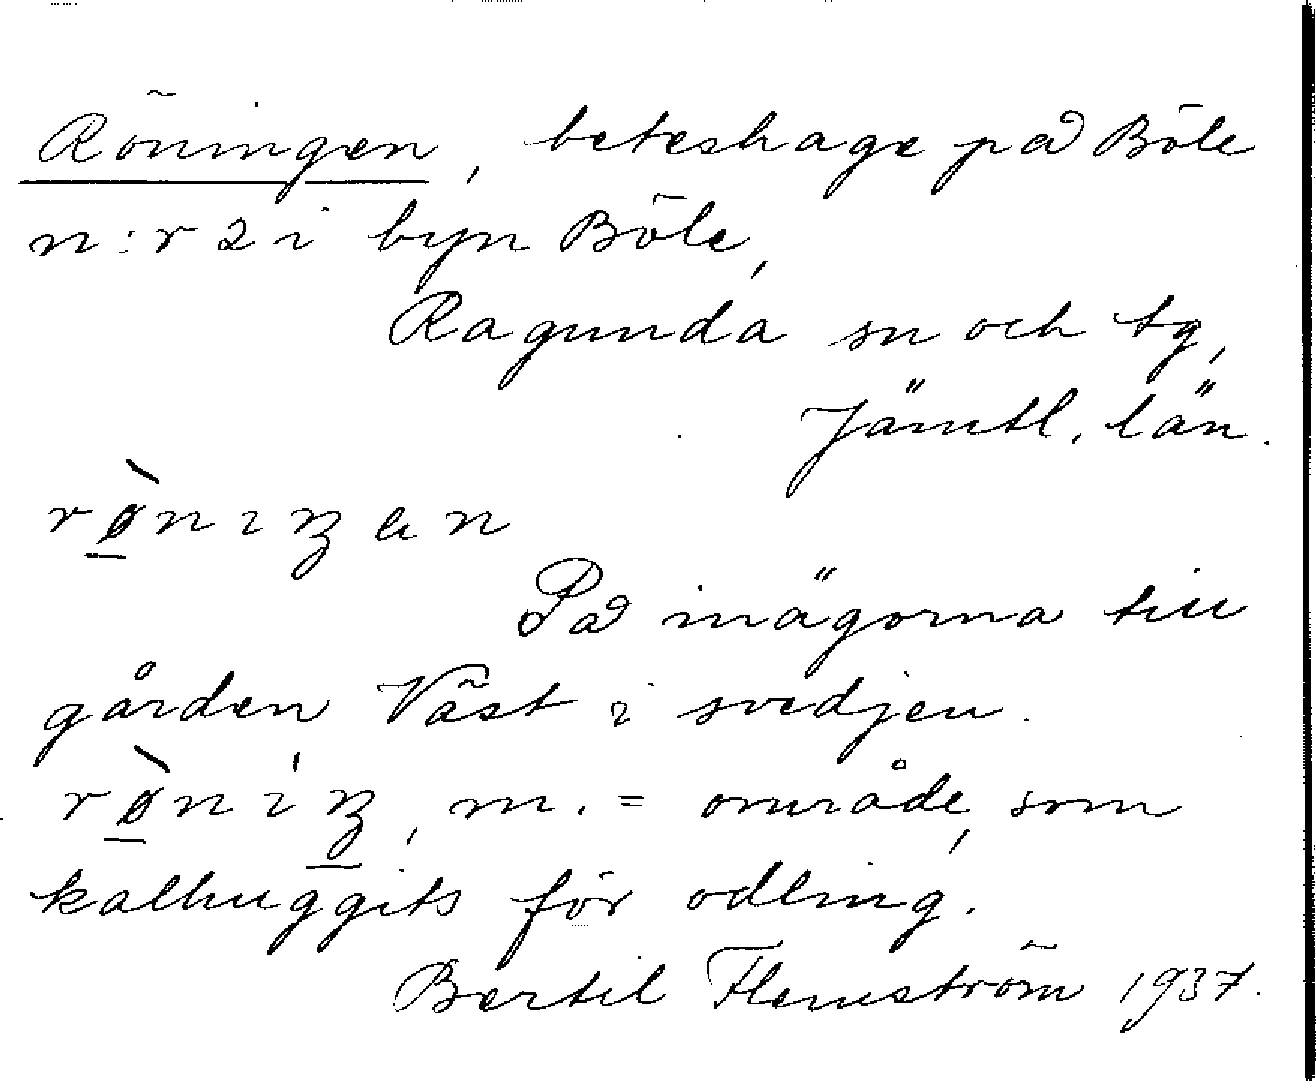 Röningen, beteshage på Böle
n:r 2 i byn Böle,
Ragunda sn och tg,
Jämtl. län.
rø̀nıŋan
På inägorna till
gården Väst i svedjen.
rø̀nıŋ, m. = område, som
kalhuggits för odling.
Bertil Flemström 1937.